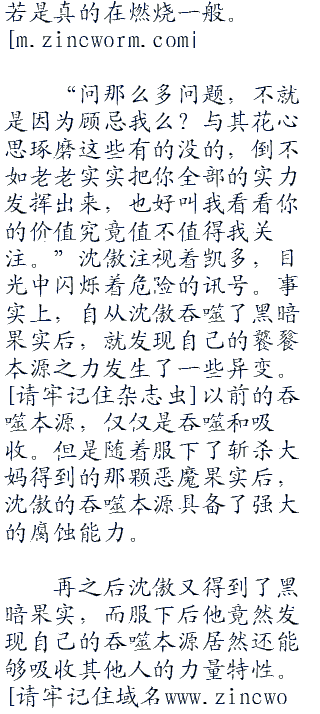 若是真的在燃烧一般。
[m.zincworm.com|
“问那么多问题，不就
是因为顾忌我么？与其花心
思琢磨这些有的没的，倒不
如老老实实把你全部的实力
发挥出来，也好叫我看看你
的价值究竟值不值得我关
注。”沈傲注视着凯多，目
光中闪烁着危险的讯号。事
实上，自从沈傲吞噬了黑暗
果实后，就发现自己的饕餮
本源之力发生了一些异变。
[请牢记住杂志虫]以前的吞
噬本源，仅仅是吞噬和吸
收。但是随着服下了斩杀大
妈得到的那颗恶魔果实后，
沈傲的吞噬本源具备了强大
的腐蚀能力。
再之后沈傲又得到了黑
暗果实，而服下后他竟然发
现自己的吞噬本源居然还能
够吸收其他人的力量特性。
[请牢记住域名www.zincwo